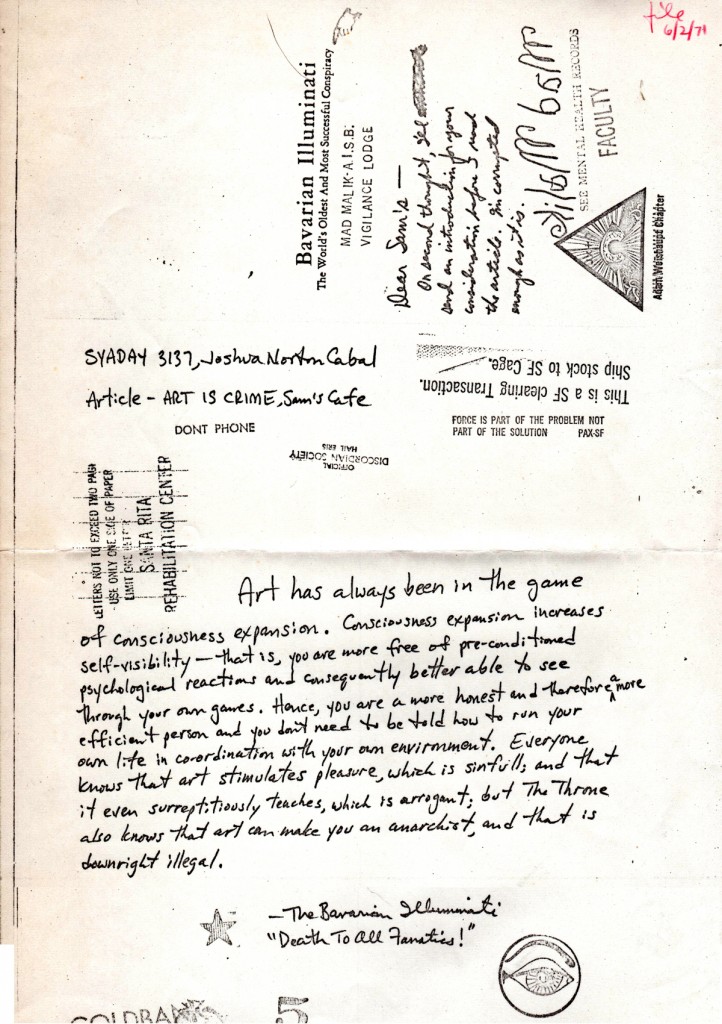 file
6/2/71
Bavarian Illuminati
The World's Oldest And Most Successful Conspiracy
MAD MALIK-A.I.S.B.
VIGILANCE LODGE
Dear Sam's —
On second thought, I'll
send an introduction for your
consideration before I send
the article. I'm corrupted
enough as it is.
SEE MENTAL HEALTH RECORDS
FACULTY
Adam Weishaupt Chapter
SYADAY 3137, Joshua Norton Cabal
Article - ART IS CRIME, Sam's Cafe
DONT PHONE
This is a SF clearing Transaction.
Ship stock to SF Cage.
FORCE IS PART OF THE PROBLEM NOT
PART OF THE SOLUTION PAX-SF
OFFICIAL
DISCORDIAN SOCIETY
HAIL ERIS
LETTERS NOT TO EXCEED TWO PAGE
USE ONLY ONE SIDE OF PAPER
LIMIT ONE LETTER
SANTA RITA
REHABILITATION CENTER
Art has always been in the game
of consciousness expansion. Consciousness expansion increases
self-visibility — that is, you are more free of pre-conditioned
psychological reactions and consequently better able to see
through your own games. Hence, you are a more honest and therefore a more
efficient person and you don't need to be told how to run your
own life in co-ordination with your own environment. Everyone
knows that art stimulates pleasure, which is sinfull; and that
it even surreptitiously teaches, which is arrogant; but The Throne
also knows that art can make you an anarchist, and that is
downright illegal.
—The Bavarian Illuminati
"Death To All Fanatics!"
5